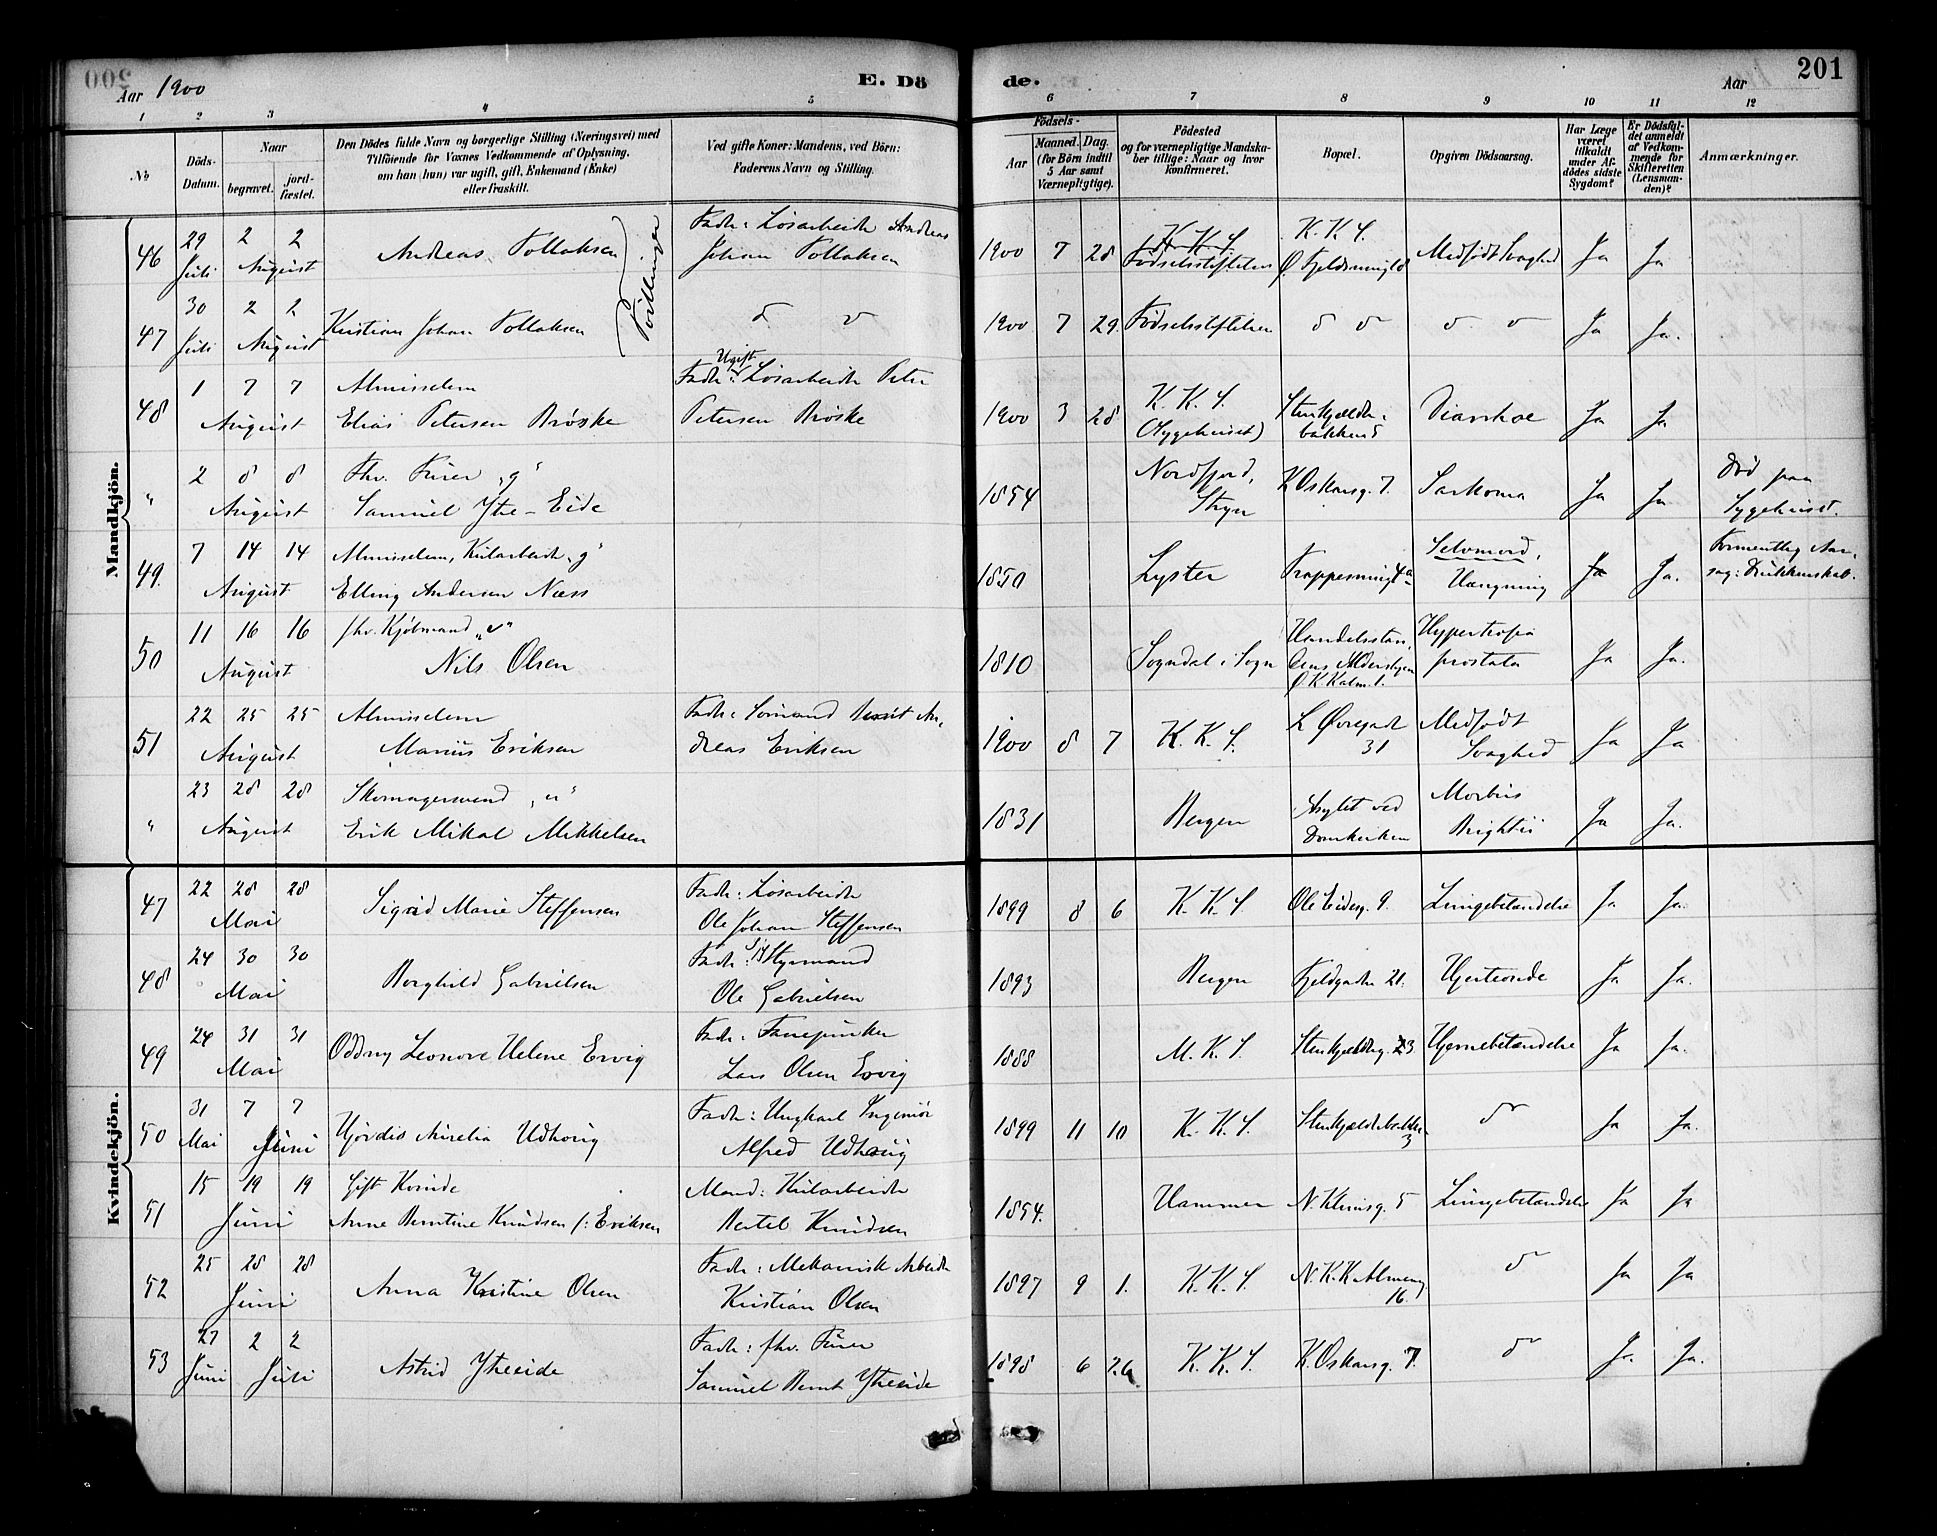 Aar 1900
E. Dö
de.
Aar
201
1 2 3 4 5 6 7 8 9 10 11 12
No
Döds-
Datum.
Naar
begravet.
jord-
fæstet.
Den Dödes fulde Navn og borgerlige Stilling (Næringsvei) med
Tilföiende for Voxnes Vedkommende af Oplysning,
om han (hun) var ugift, gift, Enkemand (Enke)
eller fraskilt.
Ved gifte Koner: Mandens, ved Börn:
Faderens Navn og Stilling.
Födsels-
Aar
Maaned. Dag.
(for Börn indtil
5 Aar samt
Værnepligtige).
Födested
og for værnepligtige Mandska-
ber tillige: Naar og hvor
konfirmeret.
Bopæl.
Opgiven Dödsaarsag.
Har Læge
været
tilkaldt
under Af-
dödes sidste
Sygdom?
Er Dödsfal-
det anmeldt
af Vedkom-
mende for
Skifteretten
(Lensman-
den)?
Anmærkninger.
Mandkjön.
46 29 Juli 2 2 August
Andreas Tollaksen
Fadr: Løsarbeidr Andreas
Johan Tollaksen
1900 7 28 K. K. S.
Fødselsstiftelsen
K. K. S.
Medfødt Svaghed Ja Ja
Tvillinger
47 30 Juli 2 2 August
Kristian Johan Tollaksen
d o
1900 7 29. Fødselsstiftelsen d o d o Ja Ja.
48 1 7 7 August
Almisselem
Elias Petersen Brøske
Ugift
Fadr: Løsarbeidr Peter
Petersen Brøske
1900 3 28 K. K. S.
(Sygehuset)
Stenkjælder-
bakken 5
Diarrhoe Ja Ja
" 2 8 8 August
Fhv. Fürer „g“
Samuel Ytre-Eide
1854 Nordfjord,
Stryn
K Oskarsg. 7. Sarkoma Ja Ja
Død paa
Sygehuset.
49. 7 14 14 August
Almisselem, Kularbeidr „g“
Elling Andersen Næss
1850 Lyster
Selvmord,
Hængning Ja Ja.
Formentlig Aar-
sag: Drukkenskab.
50 11 16 16 August
fhv. Kjøbmand „e“
Nils Olsen
1810 Sogndal i Sogn
Hypertrofia
prostata Ja Ja.
51 22 25 25 August
Almisselem
Marius Eriksen
Fadr: Sømand Bernt An-
dreas Eriksen
1900 8 7 K. K. S.
L Øvregade
31
Medfødt
Svaghed Ja Ja
" 23 28 28 August
Skomagersvend „u“
Erik Mikal Mikkelsen
1831 Bergen
Asylet ved
Domkirken
Morbus
Brightii Ja Ja.
Kvindekjön.
47 22 28 28 Mai
Sigrid Marie Steffensen
Fadr: Løsarbeidr
Ole Johan Steffensen
1899 8 6 K. K. S. Ole Eidesg. 9. Lungebetændelse Ja Ja.
48 24 30 30 Mai
Borghild Gabrielsen
Fadr: Styrmand
Ole Gabrielsen
1893 Bergen Fjeldgaden 21. Hjerteonde Ja Ja.
49 24 31 31 Mai
Oddny Leonore Helene Ervig
Fadr:
Lars Olsen Ervig
1888 M. K. S. Hjernebetændelse Ja Ja.
50 31 Mai 7 7 Juni
Hjørdis Aurelia Udhoug
Fadr: Ungkarl Ingeniør
Alfred Udhoug
1899 11 10 K. K. S. Stenkjælderbakken
3
do Ja Ja.
51 15 19 19 Juni
Gift Kvinde
Anne Berntine Knudsen f: Eriksen
Mand: Kularbeidr
Bertel Knudsen
1854. Hammer N. Klimsg. 5 Lungebetændelse Ja Ja
52 25 28 28 Juni
Anna Kristine Olsen
Fadr: Mekanisk Arbeidr
Kristian Olsen
1897 9 1. K. K. S. N. K. K Almeng
16.
do Ja Ja
53 27 Juni 2 2 Juli
Astrid Ytreeide
Fadr: fhv. Fürer
Samuel Bernt Ytreeide
1898 6 26 K. K. S. K. Oskarsg. 7. do Ja. Ja.